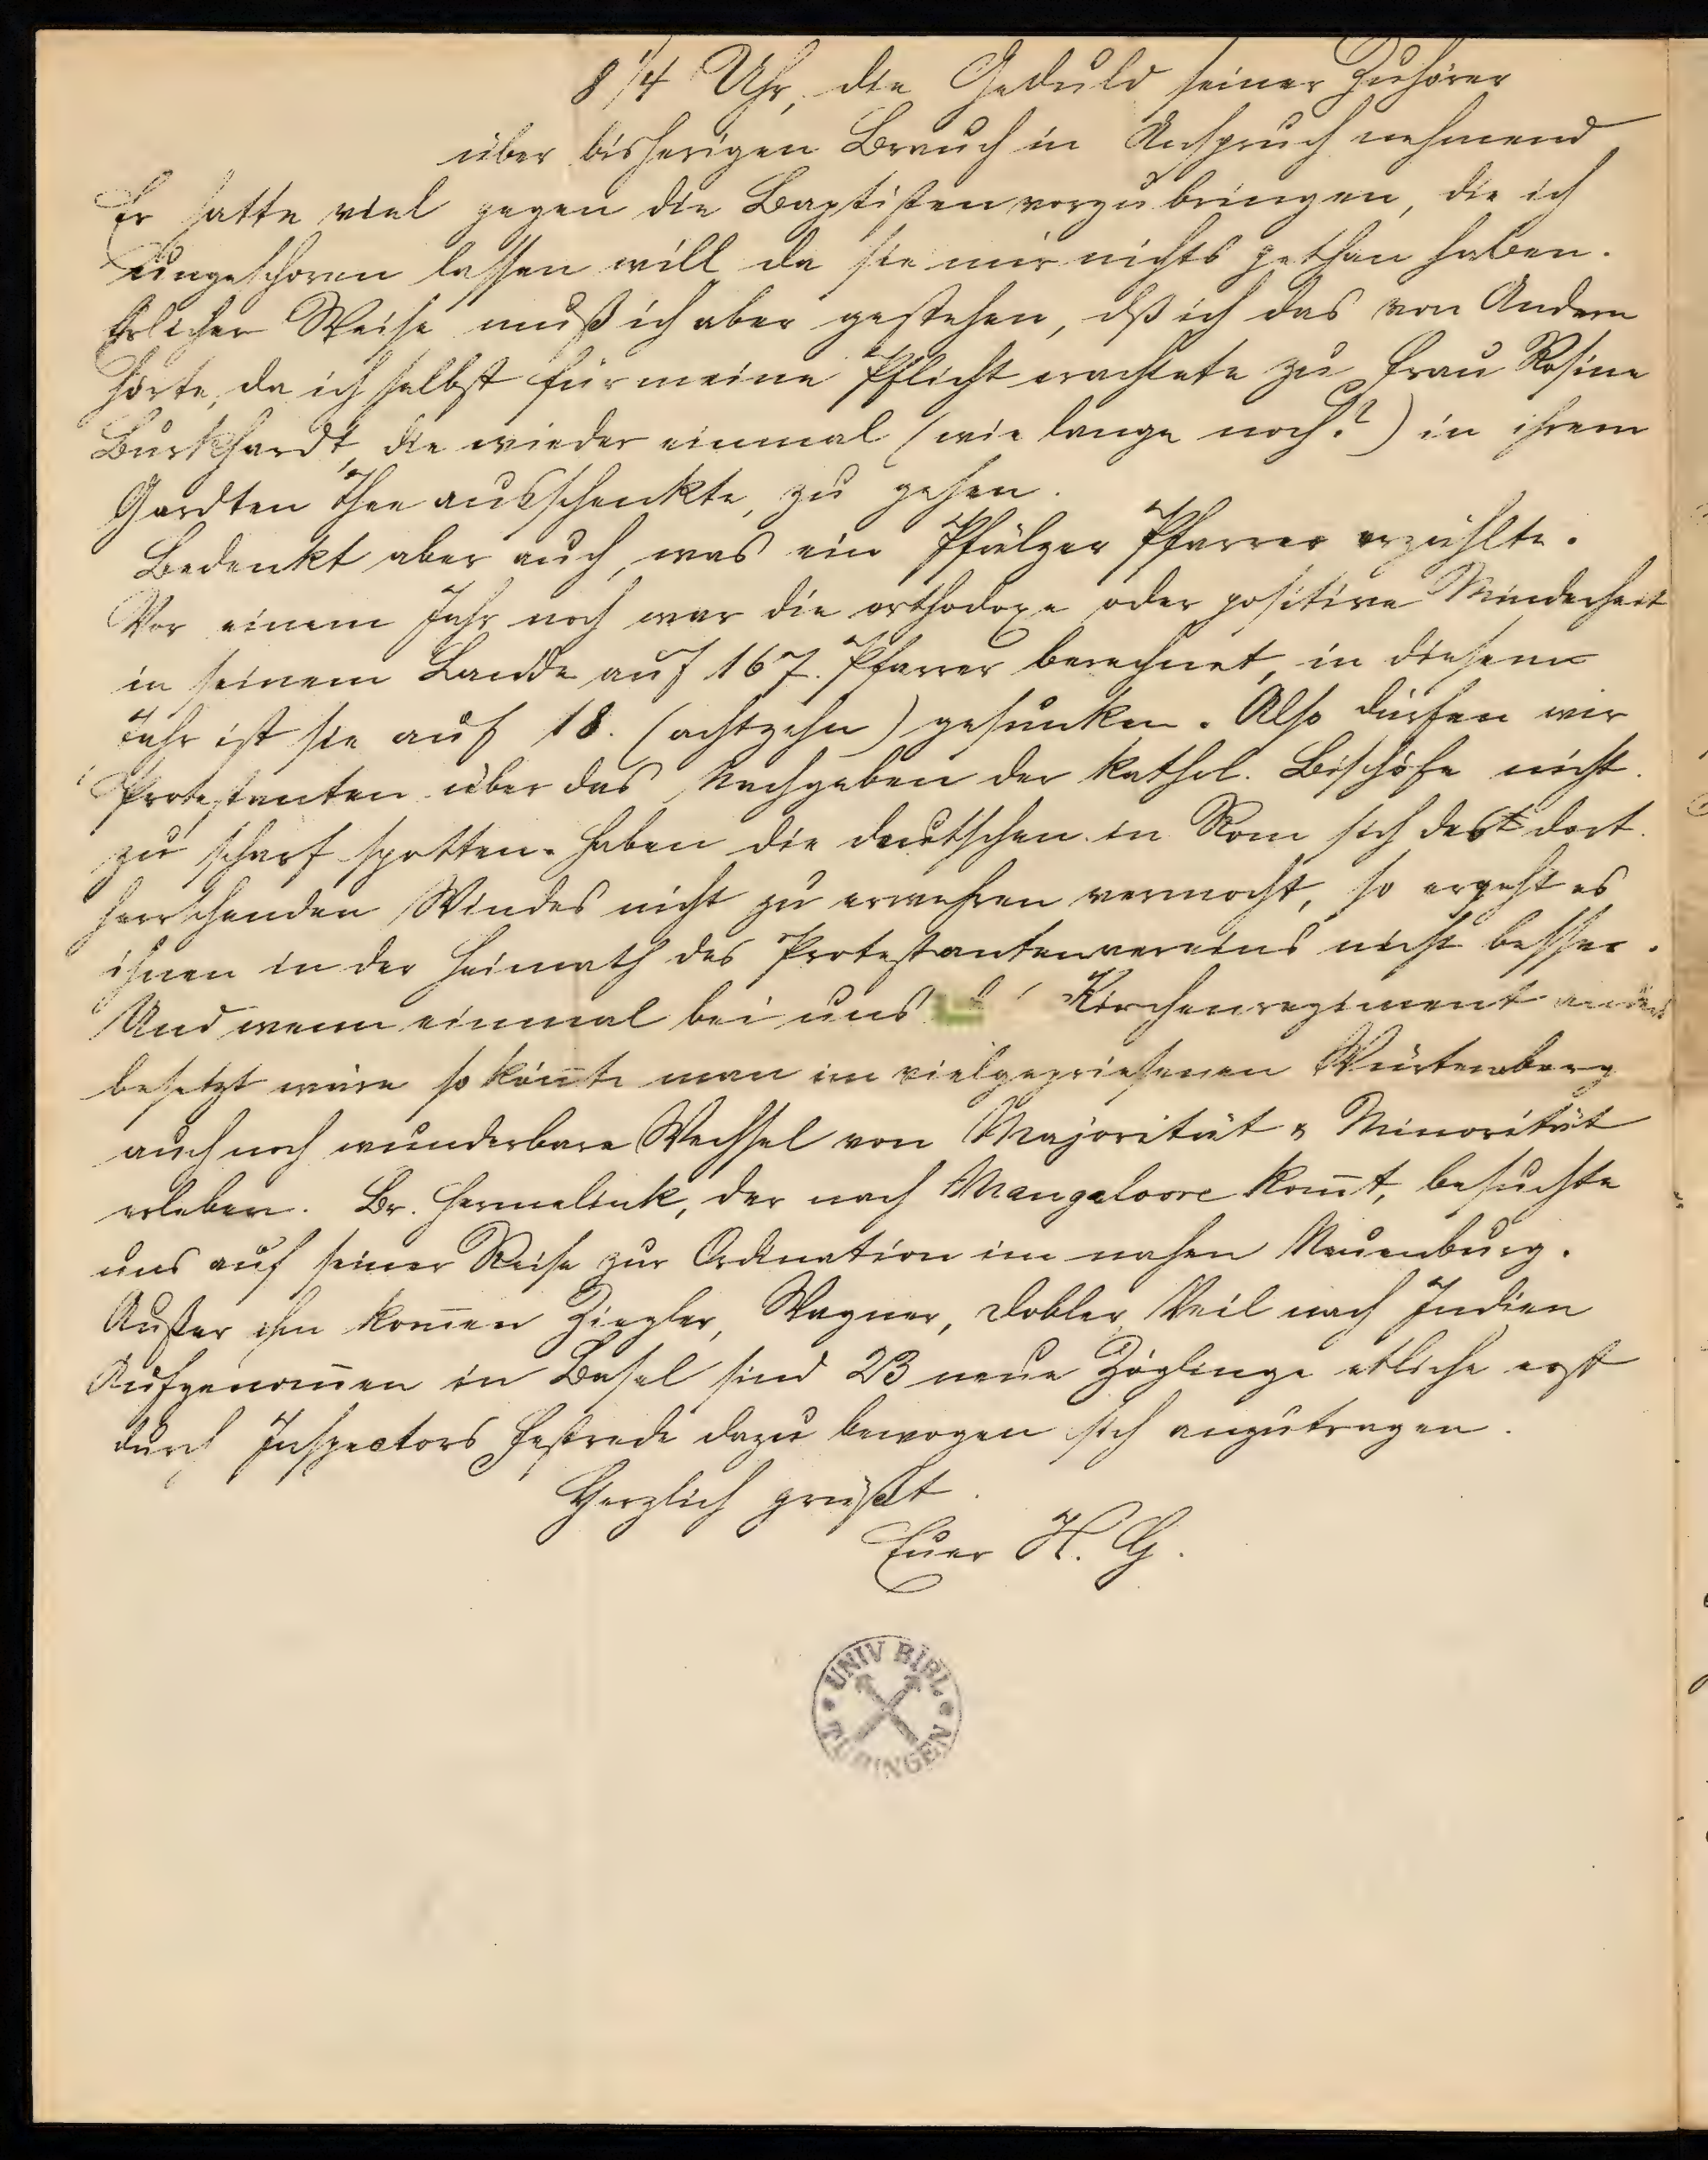 8 1/4 Uhr, die Geduld seiner Zuhörer
über bisherigen Brauch in Anspruch nehmend
Er hatte viel gegen die Baptisten vorzubringen, die ich
ungeschoren lassen will da sie mir nichts gethan haben.
Ehrlicher Weise muß ich aber gestehen, dß ich das von Andern
hörte, da ich selbst für meine Pflicht erachtete zu Frau Rosine
Burkhardt, die wieder einmal (wie lange noch?) in ihrem
Gardten Thee ausschenkte, zu gehen.
Bedenkt aber auch, was ein Pfälzer Pfarrer erzählte.
Vor einem Jahr noch war die orthodoxe oder positive Minderheit
in seinem Lande auf 167. Pfarrer berechnet, in diesem
Jahr ist sie auf 18. (achtzehn) gesunken. Also dürfen wir
Protestanten über das Nachgeben der kathol. Bischöfe nicht
zu scharf spotten. Haben die deutschen in Rom sich des dort
herrschenden Windes nicht zu erwehren vermocht, so ergeht es
ihnen in der Heimath des Protestantenvereins nicht besser.
Und wenn einmal bei uns Kirchenregiment anders
besetzt wäre so kön̄te man im vielgepriesenen Würtemberg
auch noch wunderbare Wechsel von Majorität & Minorität
erleben. Br. Hermelink, der nach Mangaloore kom̄t, besuchte
uns auf seiner Reise zur Ordination im nahen Neuenburg.
Außer ihm kom̄en Ziegler, Wagner, Dobler, Veil nach Indien
Aufgenom̄en in Basel sind 23 neue Zöglinge etliche erst
durch Inspectors Festrede dazu bewogen sich anzutragen.
Herzlich grüßt
Euer H. G.
UNIV BIBL.
TÜBINGEN